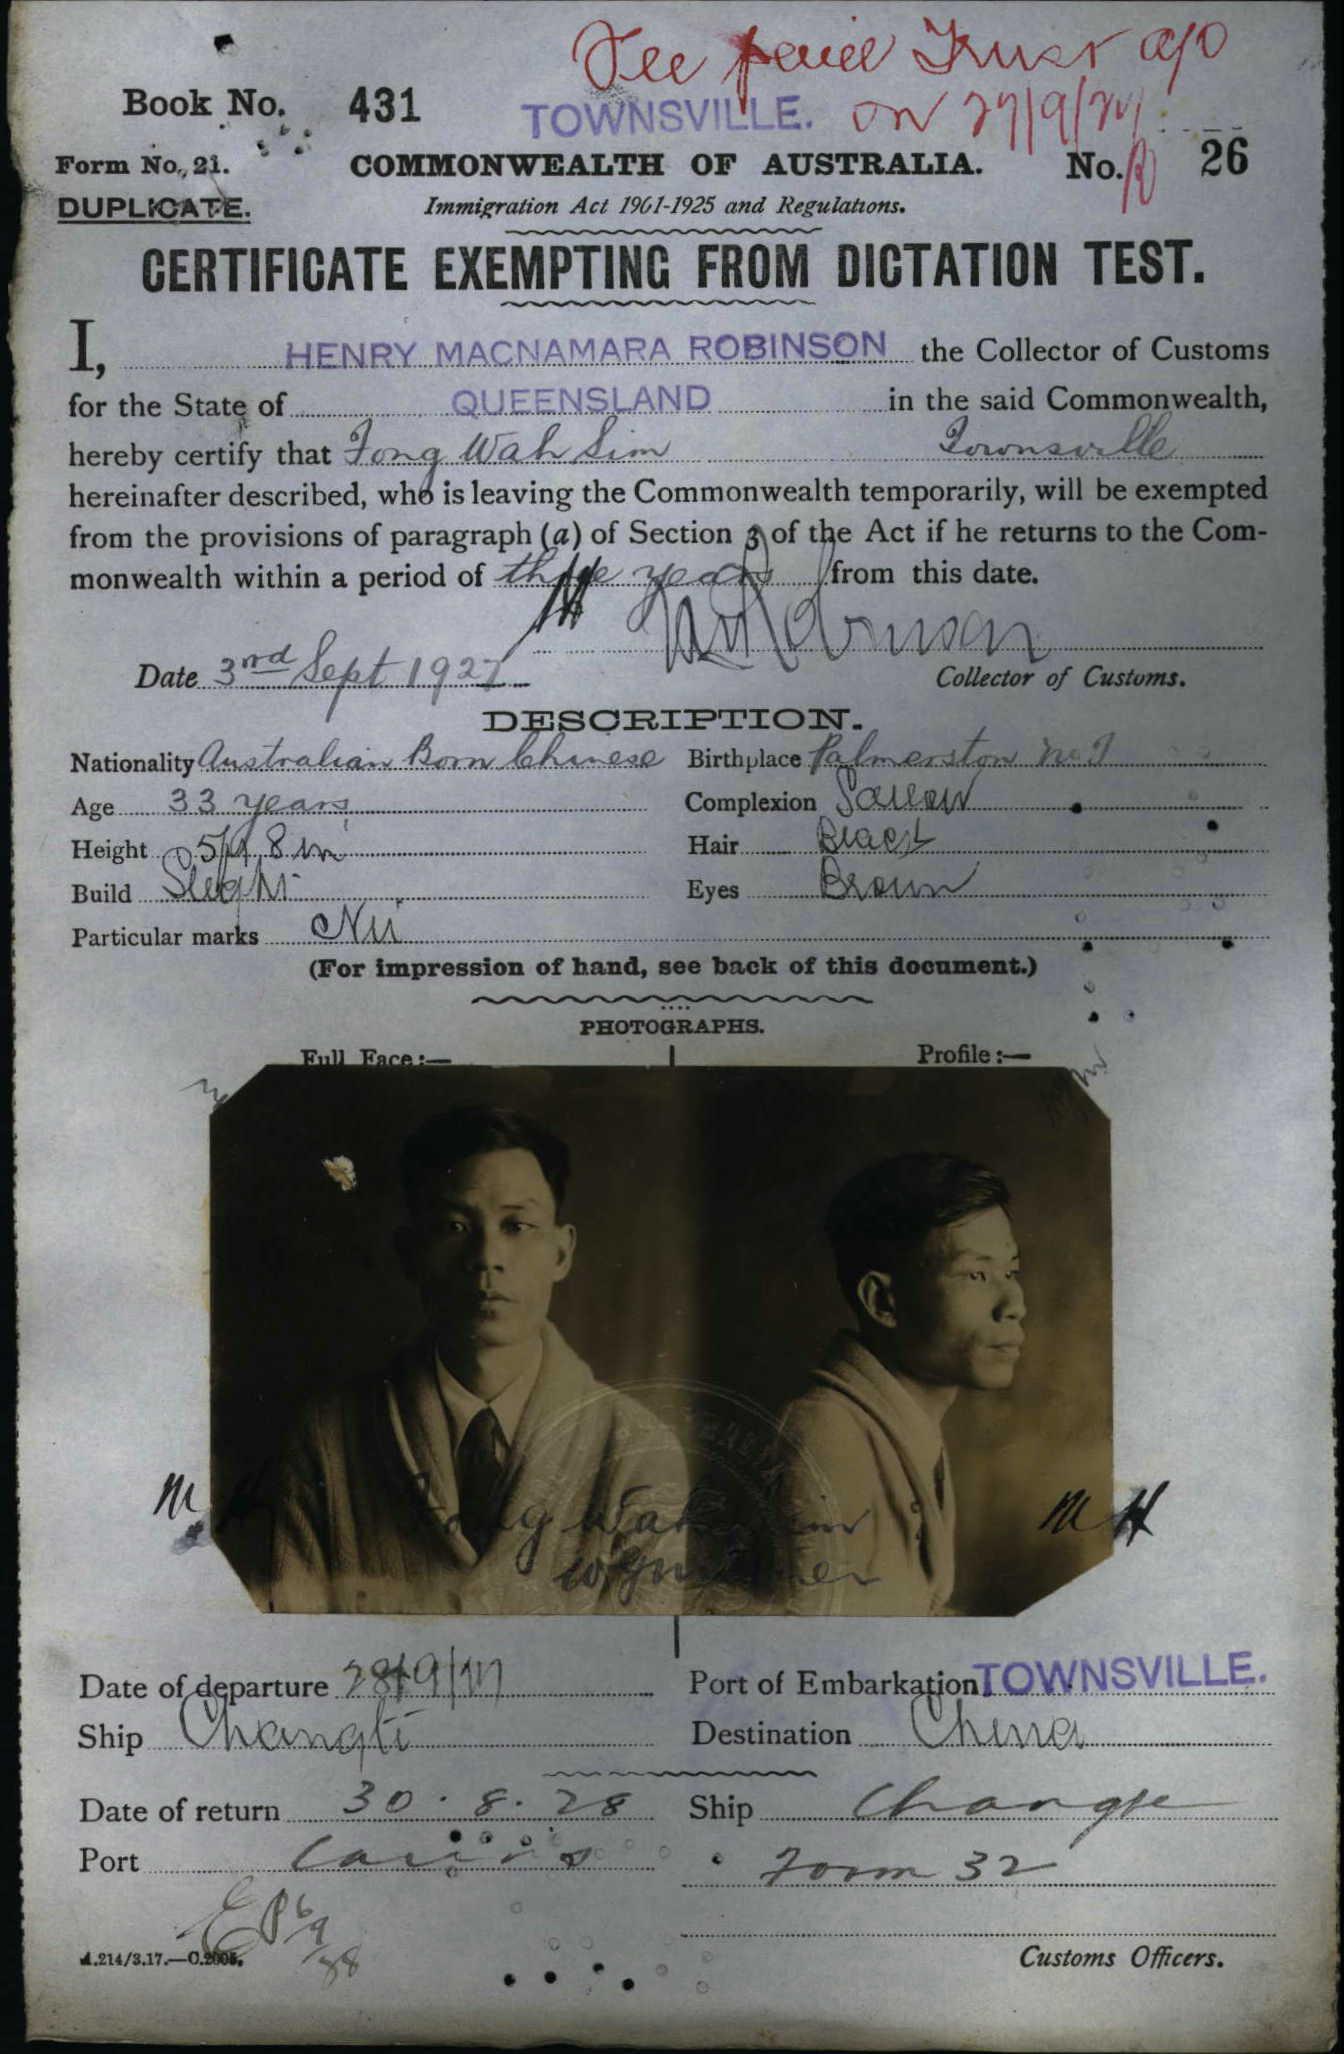 See
TOWNSVILLE. on 27/9/27
Book No. 431
Form No. 21. COMMONWEALTH OF AUSTRALIA. No. 26
DUPLICATE. Immigration Act 1901-1925 and Regulations.
CERTIFICATE EXEMPTING FROM DICTATION TEST.
I, HENRY MACNAMARA ROBINSON the Collector of Customs
for the State of QUEENSLAND in the said Commonwealth,
hereby certify that Fong Wah Sim Townsville
hereinafter described, who is leaving the Commonwealth temporarily, will be exempted
from the provisions of paragraph (a) of Section 3 of the Act if he returns to the Com-
monwealth within a period of three years from this date.
HMRobinson
Date 3rd Sept 1927 Collector of Customs.
DESCRIPTION.
Nationality Australian Born Chinese Birthplace Palmerston N.T
Age 33 years Complexion Sallow
Height 5ft 8 in Hair Black
Build Slight Eyes Brown
Particular marks Nil
(For impression of hand, see back of this document.)
PHOTOGRAPHS.
Full Face:— Profile:—
M H M H
Fong Wah Sim
Date of departure 28/9/27 Port of Embarkation TOWNSVILLE.
Ship Changte Destination China
Date of return 30.8.28 Ship Changte
Port Cairns Form 32
A.214/3.17.—C.2005. Customs Officers.